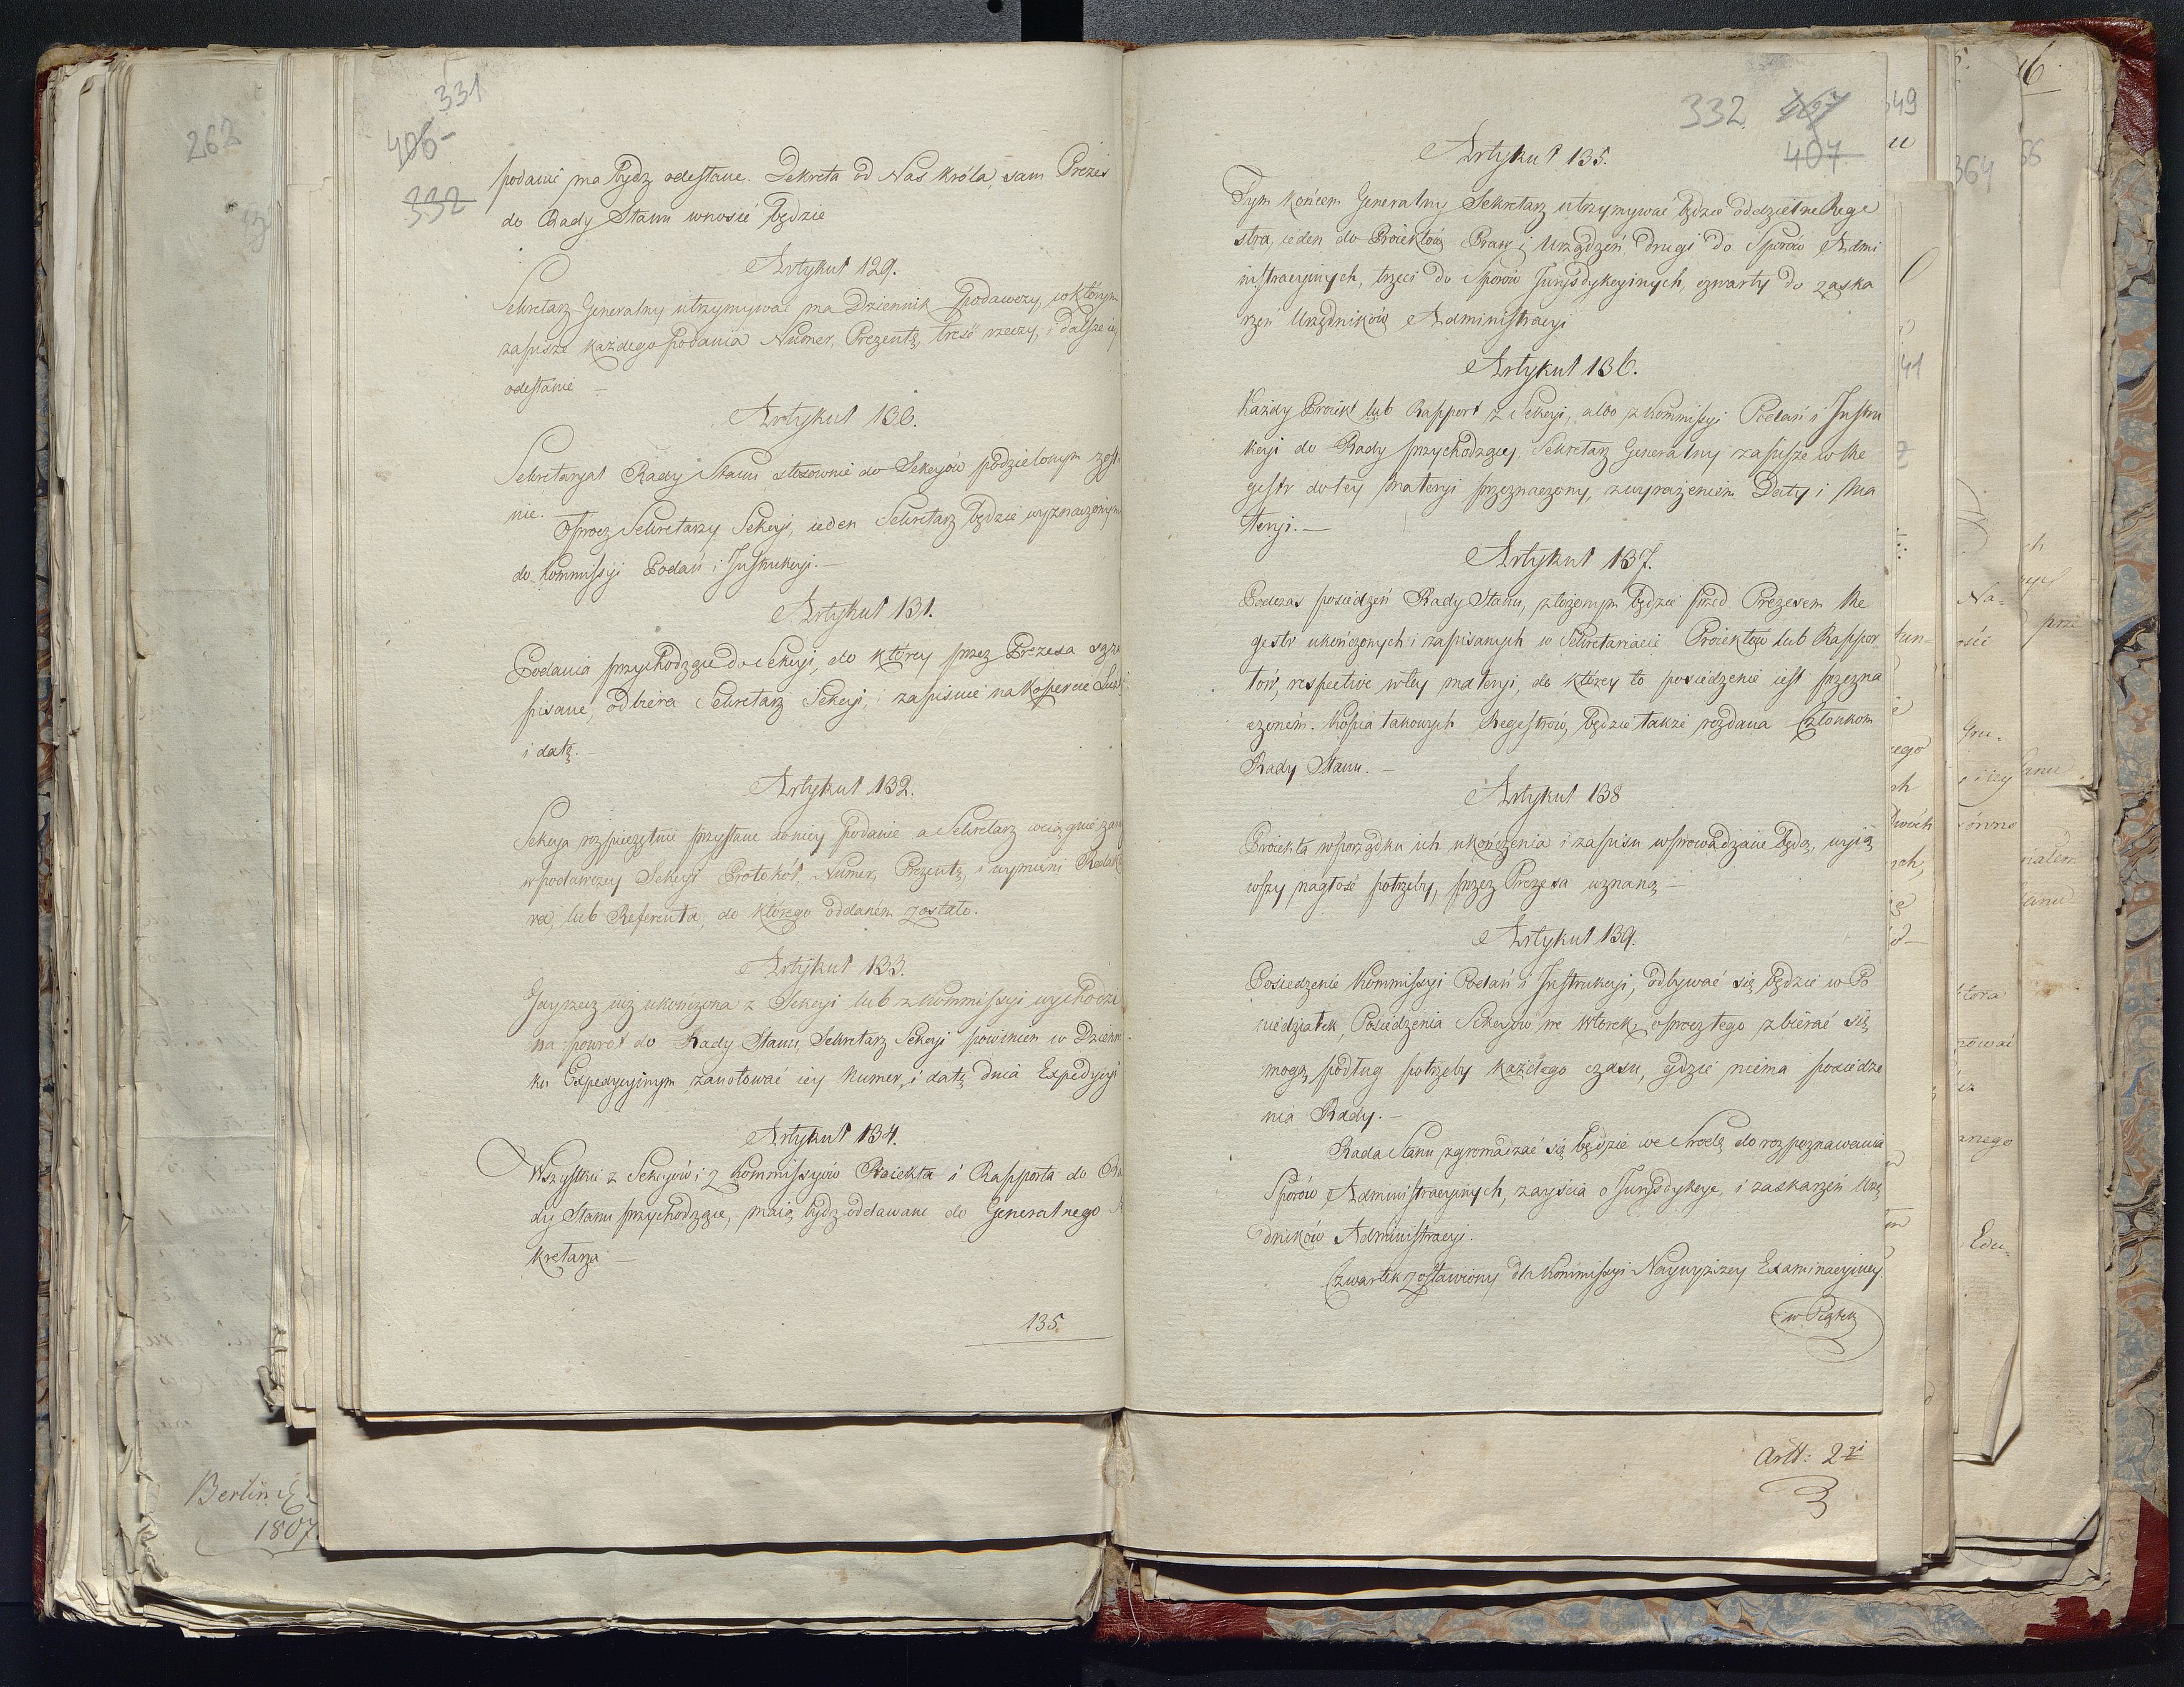 331
406
332
podanie ma bydz odesłane. Dekreta od Nas Króla, sam Prezes
do Rady Stanu wnosić będzie
Artykuł 129.
Sekretarz Generalny utrzymywać ma Dziennik Podawczy, w którym
zapisze każdego podania Numer, Prezentę, treść rzeczy, i dalsze
odesłanie —
Artykuł 130.
Sekretaryat Rady Stanu stosownie do Sekcyów podzielonym
nie. Oprocz Sekretarzy Sekcyi, ieden Sekretarz będzie wyznaczonym
do Kommissyi Podań i Instrukcyi. —
Artykuł 131.
Podania przychodzące do Sekcyi, do którey przez Prezesa są
pisane, odbiera Sekretarz Sekcyi, i zapisuie na kopercie
i datę. —
Artykuł 132.
Sekcya rozpieczętuie przysłane do niey podanie a Sekretarz wciągnie
w podawczy Sekcyi Protokół, Numer, Prezentę, i wymieni
ra, lub Referenta, do którego oddaném zostało.
Artykuł 133.
Gdy rzecz iuż ukończona z Sekcyi lub z Kommissyi wychodzi
na powrót do Rady Stanu, Sekretarz Sekcyi powinien w Dzienni
ku Expedycyinym zanotować iey Numer, i datę dnia Expedycyi
Artykuł 134.
Wszystkie z Sekcyów i z Kommissyów Proiekta i Rapporta do
dy Stanu przychodzące, maią bydz oddawane do Generalnego
kretarza —
135.
332
407
Artykuł 135.
Tym końcem Generalny Sekretarz utrzymywać będzie oddzielne Rege
stra, ieden do Proiektów Praw i Urządzeń drugi do Sporów Admi
nistracyinych, trzeci do Sporów Jurysdykcyinych, czwarty do zaska
rzeń Urzędników Administracyi
Artykuł 136.
Każdy Proiekt lub Rapport z Sekcyi, albo z Kommissyi Podań i Instru
kcyi do Rady przychodzący, Sekretarz Generalny zapisze w Re
gestr do tey materyi przeznaczony, z wyrażeniem Daty i Ma
teryi. —
Artykuł 137.
Podczas posiedzeń Rady Stanu, złożonym będzie przed Prezesem Re
gestr ukończonych i zapisanych w Sekretariacie Proiektów lub Rappor
tów, respective w tey materyi, do którey to posiedzenie iest przezna
czoném. Kopia takowych Regestrów, będzie także rozdana Członkom
Rady Stanu. —
Artykuł 138
Proiekta w porządku ich ukończenia i zapisu wprowadzane będą, wyią
wszy nagłość potrzeby, przez Prezesa uznaną —
Artykuł 139.
Posiedzenie Kommissyi Podań i Instrukcyi, odbywać się będzie w Po
niedziałek, Posiedzenia Sekcyów we Wtorek, oprocz tego zbiérać się
mogą, podług potrzeby każdego czasu, gdzie niema posiedze
nia Rady. —
Rada Stanu zgromadzać się będzie we Srodę do rozpoznawania
Sporów Administracyinych, zayścia o Jurysdykcye, i zaskarżeń Urzę
dników Administracyi.
Czwartek zostawiony dla Kommissyi Naywyższey Examinacyiney
w Piątek
Artt: 2
262
Berlin
1807.
349
364